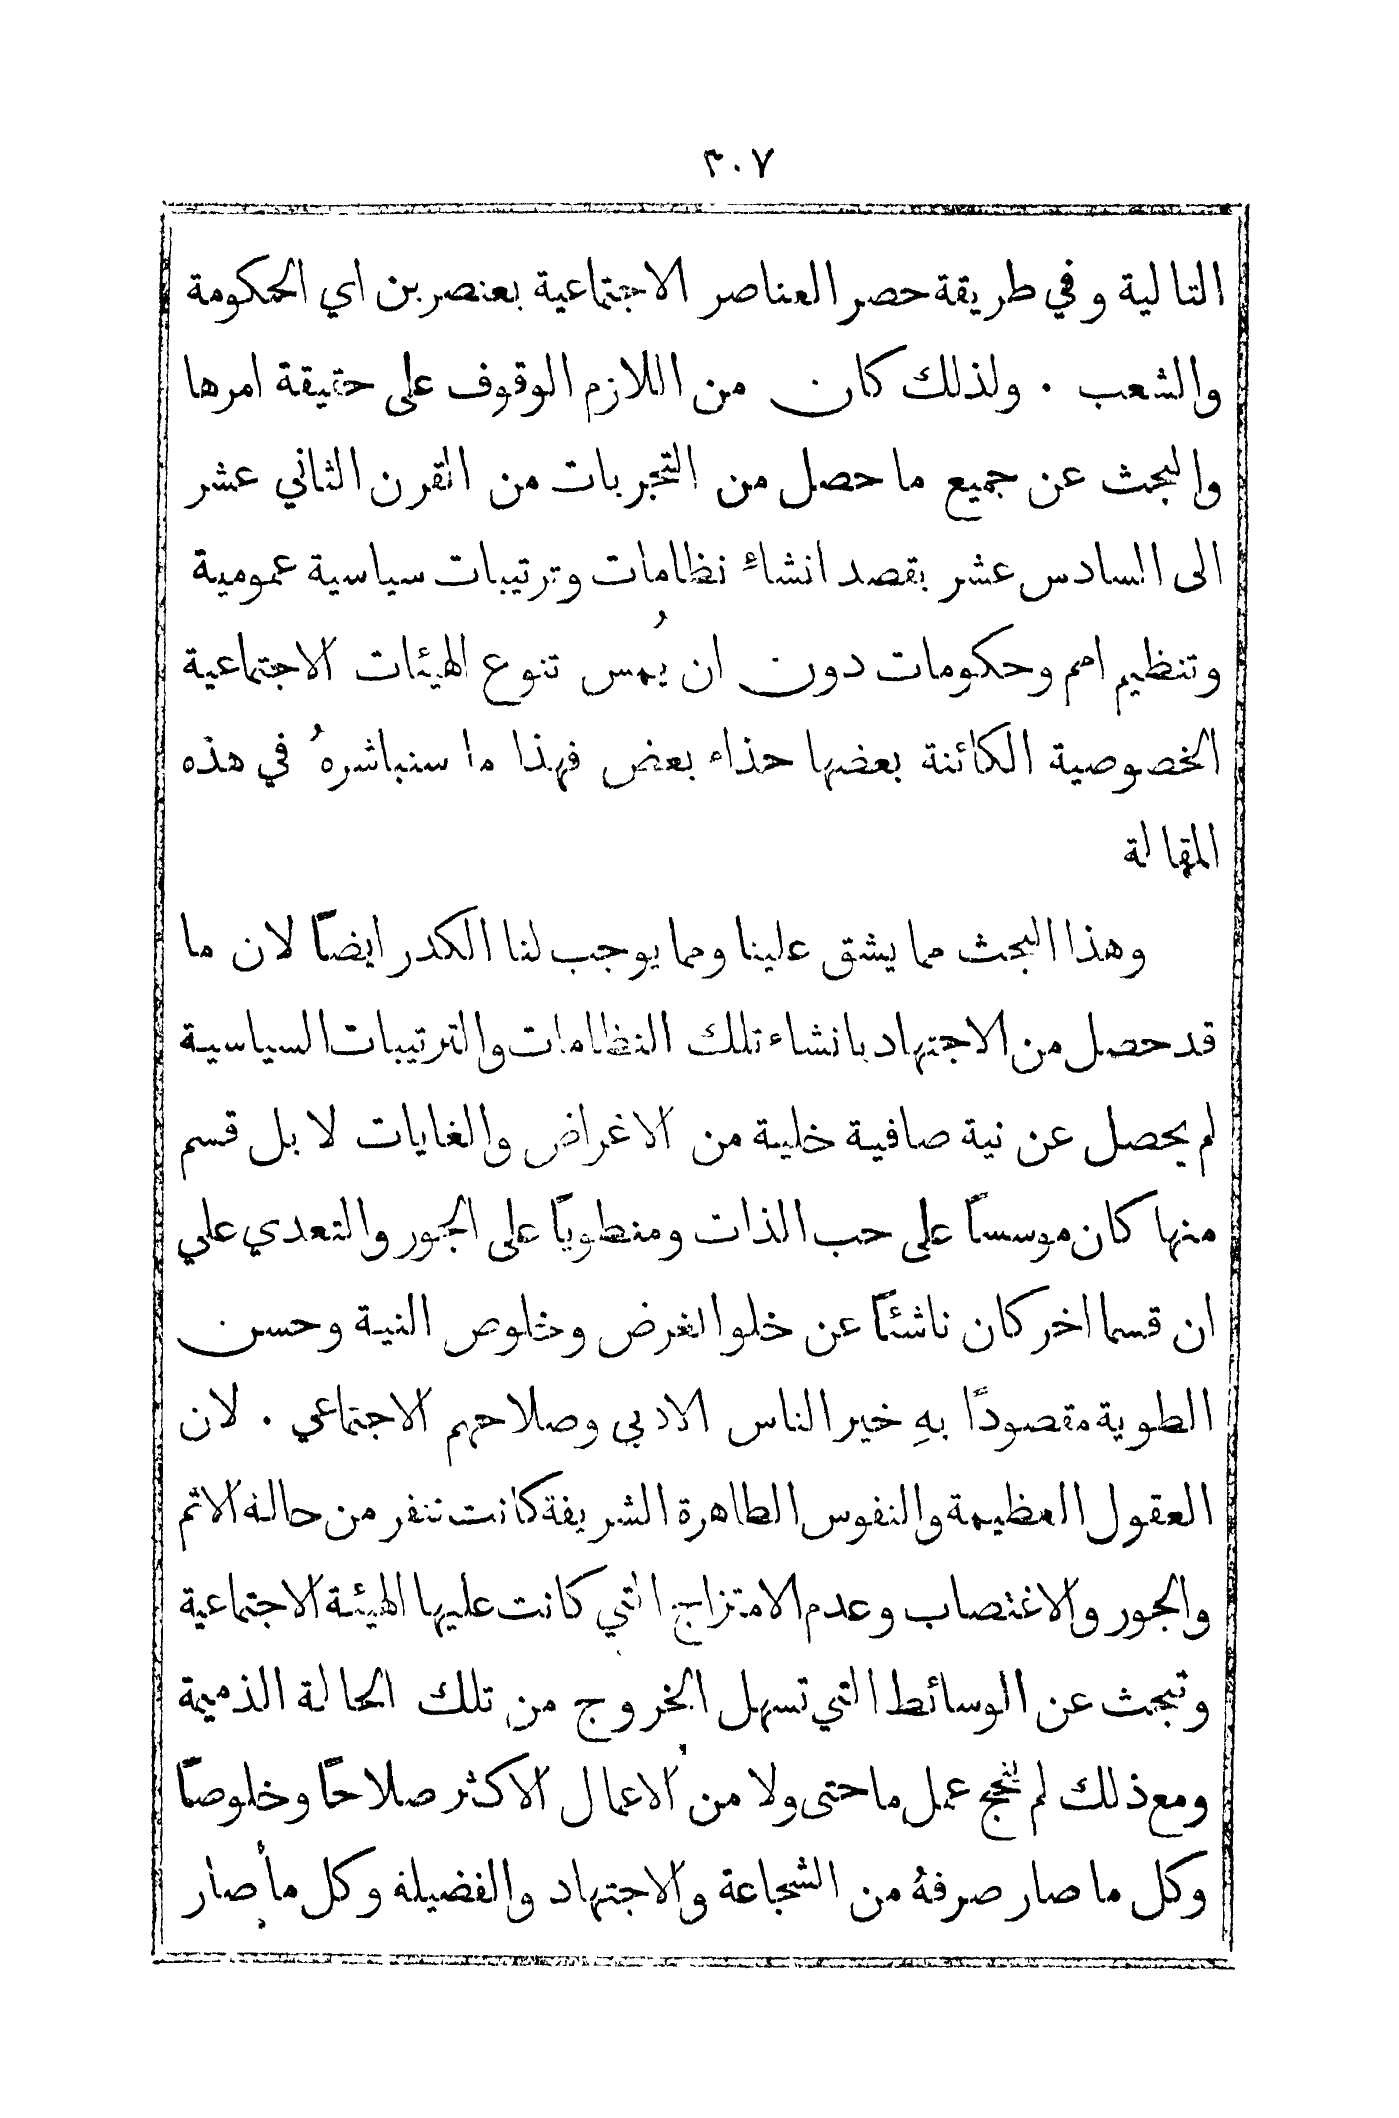 ٣٠٧
التالية وفي طريقة حصر العناصر الاجتماعية بعنصرين اي الحكومة
والشعب . ولذلك كان من اللازم الوقوف على حقيقة امرها
والبحث عن جميع ما حصل من التجربات من القرن الثاني عشر
الى السادس عشر بقصد انشاء نظامات وترتيبات سياسية عمومية
وتنظيم امم وحكومات دون ان يُمس تنوع الهيئات الاجتماعية
الخصوصية الكائنة بعضها حذاء بعض فهذا ما سنباشرهُ في هذه
المقالة
وهذا البحث مما يشق علينا ومما يوجب لنا الكدر ايضاً لان ما
قد حصل من الاجتهاد بانشاء تلك النظامات والترتيبات السياسية
لم يحصل عن نية صافية خلية من الاغراض والغايات لا بل قسم
منها كان موسساً على حب الذات ومنطوياً على الجور والتعدي على
ان قسما اخر كان ناشئاً عن خلو الغرض وخلوص النية وحسن
الطوية مقصوداً بهِ خير الناس الادبي وصلاحهم الاجتماعي . لان
العقول العظيمة والنفوس الطاهرة الشريفة كانت تنفر من حالة الاثم
والجور والاغتصاب وعدم الامتزاج التي كانت عليها الهيئة الاجتماعية
وتبحث عن الوسائط التي تسهل الخروج من تلك الحالة الذميمة
ومع ذلك لم ينجح عمل ما حتى ولا من الاعمال الاكثر صلاحاً وخلوصاً
وكل ما صار صرفهُ من الشجاعة والاجتهاد والفضيلة وكل ما صار